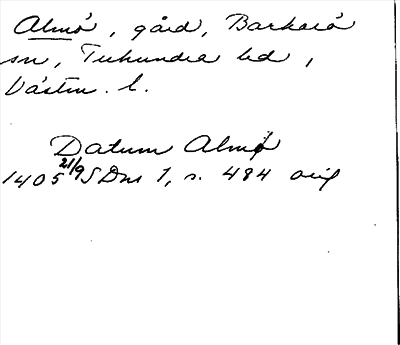 Almö, gård, Barkarö
sn, Tuhundra hd,
Västm. l.
Datum Almö
1405 21/9 SDns 1, s. 484 orig